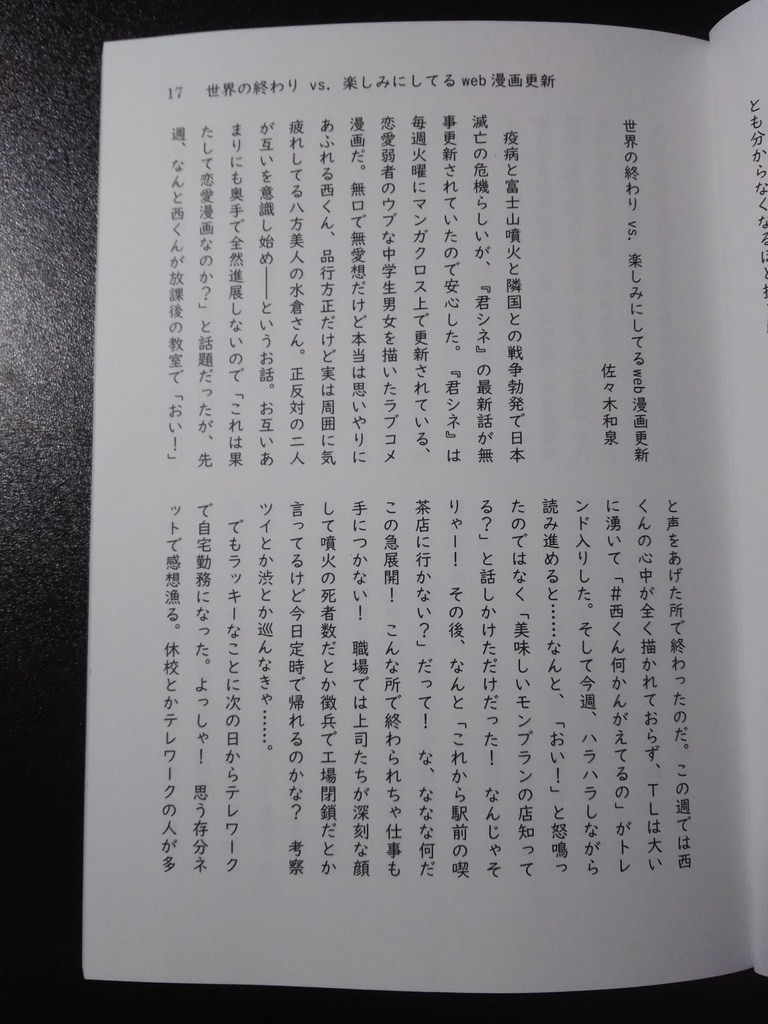 17 世界の終わり vs. 楽しみにしてるweb漫画更新
世界の終わり vs. 楽しみにしてるweb漫画更新
佐々木和泉
疫病と富士山噴火と隣国との戦争勃発で日本
滅亡の危機らしいが、『君シネ』の最新話が無
事更新されていたので安心した。『君シネ』は
毎週火曜にマンガクロス上で更新されている、
恋愛弱者のウブな中学生男女を描いたラブコメ
漫画だ。無口で無愛想だけど本当は思いやりに
あふれる西くん、品行方正だけど実は周囲に気
疲れしてる八方美人の水倉さん。正反対の二人
が互いを意識し始め――というお話。お互いあ
まりにも奥手で全然進展しないので「これは果
たして恋愛漫画なのか?」と話題だったが、先
週、なんと西くんが放課後の教室で「おい!」
と声をあげた所で終わったのだ。この週では西
くんの心中が全く描かれておらず、TLは大い
に湧いて「#西くん何かんがえてるの」がトレ
ンド入りした。そして今週、ハラハラしながら
読み進めると……なんと、「おい!」と怒鳴っ
たのではなく「美味しいモンブランの店知って
る?」と話しかけただけだった! なんじゃそ
りゃー! その後、なんと「これから駅前の喫
茶店に行かない?」だって! な、ななな何だ
この急展開! こんな所で終わられちゃ仕事も
手につかない! 職場では上司たちが深刻な顔
して噴火の死者数だとか徴兵で工場閉鎖だとか
言ってるけど今日定時で帰れるのかな? 考察
ツイとか渋とか巡んなきゃ……。
でもラッキーなことに次の日からテレワーク
で自宅勤務になった。よっしゃ! 思う存分ネ
ットで感想漁る。休校とかテレワークの人が多